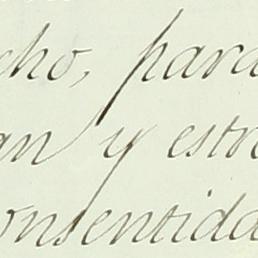 cho, para
an y estre
onsentida